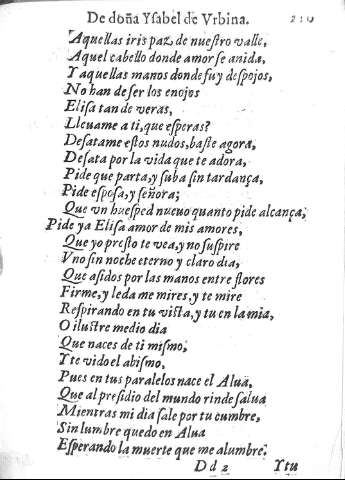 De doña Ysabel de Vrbina. 210
Aquellas iris paz de nuestro valle,
Aquel cabello donde amor se anida,
Y aquellas manos donde fuy despojos,
No han de ser los enojos
Elisa tan de veras,
Lleuame a ti, que esperas?
Desatame estos nudos, baste agora,
Desata por la vida que te adora,
Pide que parta, y suba sin tardança,
Pide esposa, y señora;
Que vn huesped nueuo quanto pide alcança,
Pide ya Elisa amor de mis amores,
Que yo presto te vea, y no suspire
Vno sin noche eterno y claro dia,
Que asidos por las manos entre flores
Firme, y leda me mires, y te mire
Respirando en tu vista, y tu en la mia,
O ilustre medio dia
Que naces de ti mismo,
Y te vido el abismo,
Pues en tus paralelos nace el Alua,
Que al presidio del mundo rinde salua
Mientras mi dia sale por tu cumbre,
Sin lumbre quedo en Alua
Esperando la muerte que me alumbre.
D d 2 Y tu